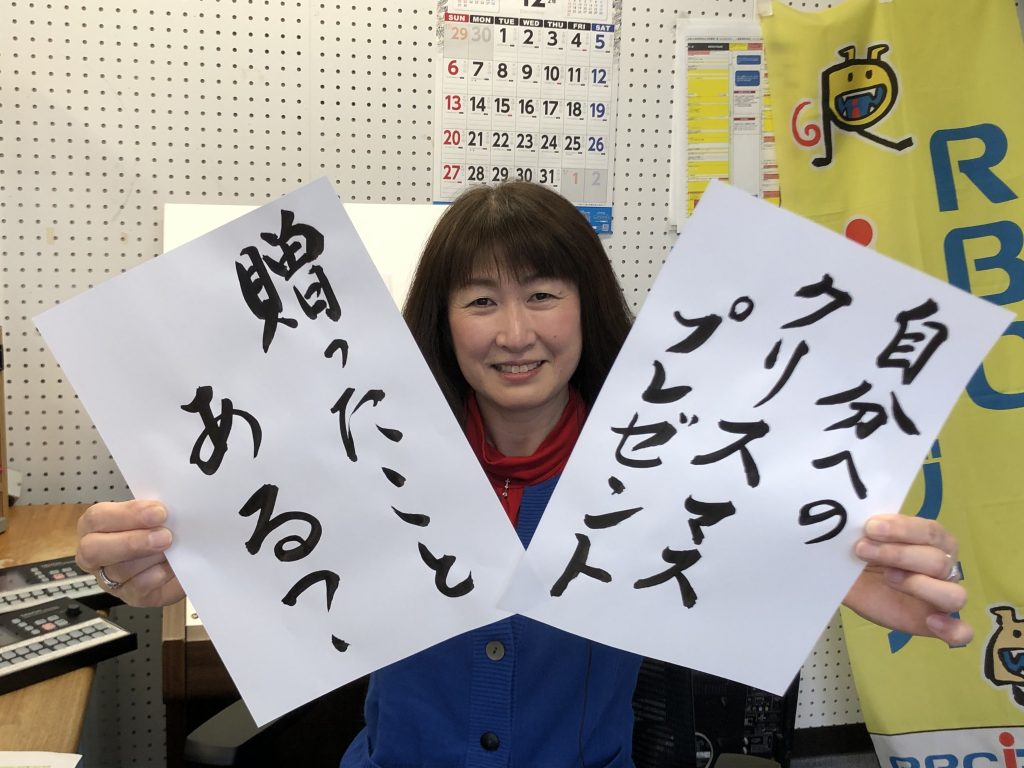 自分への
クリスマス
プレゼント
贈ったこと
ある？
12
SUN MON TUE WED THU FRI SAT
29 30 1 2 3 4 5
6 7 8 9 10 11 12
13 14 15 16 17 18 19
20 21 22 23 24 25 26
27 28 29 30 31 1 2
RBC